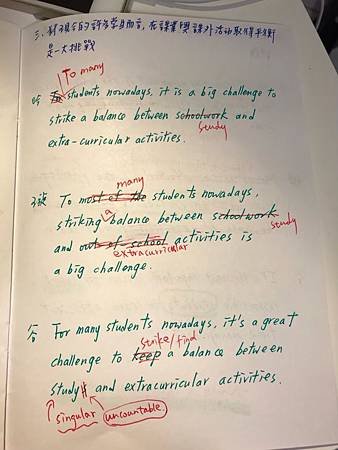 三、對現今的許多學員而言,在課業與課外活動取得平衡
是一大挑戰
To many
students nowadays, it is a big challenge to
strike a balance between schoolwork and
study
extra-curricular activities.
many
To most of the students nowadays,
striking a balance between schoolwork
study
and out of school activities is
extracurricular
a big challenge.
答 For many students nowadays, it's a great
strike/find
challenge to keep a balance between
study and extracurricular activities.
singular uncountable.